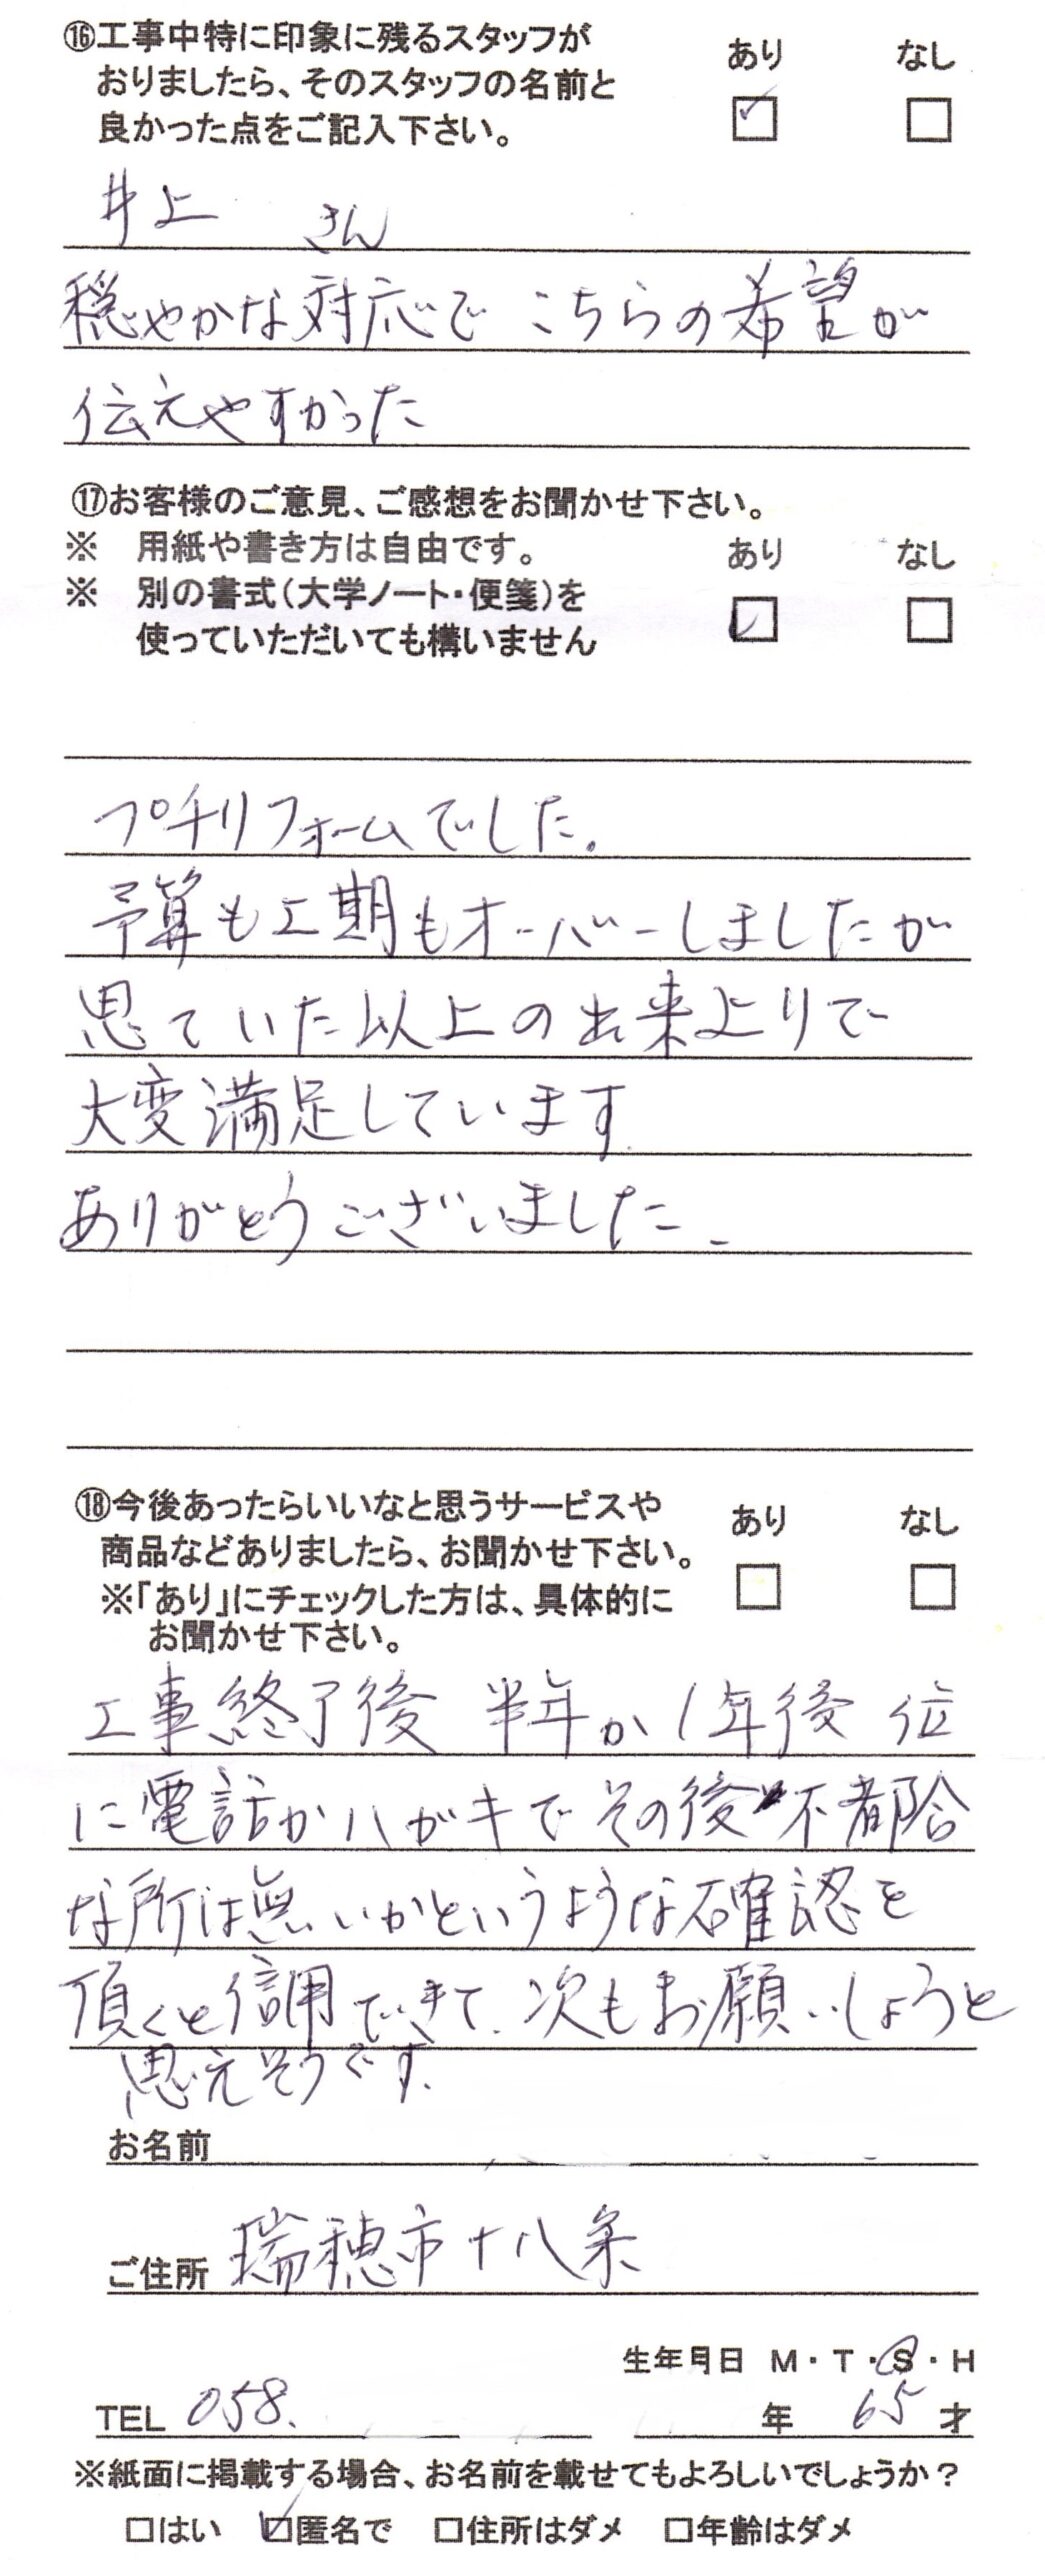 ⑯工事中特に印象に残るスタッフが
おりましたら、そのスタッフの名前と
良かった点をご記入下さい。
あり なし
井上 さん
穏やかな対応で こちらの希望が
伝えやすかった
⑰お客様のご意見、ご感想をお聞かせ下さい。
※ 用紙や書き方は自由です。
※ 別の書式(大学ノート・便箋)を
使っていただいても構いません
あり なし
プチリフォームでした。
予算も工期もオーバーしましたが
思ていた以上の出来上りで
大変満足しています.
ありがとうございました.
⑱今後あったらいいなと思うサービスや
商品などありましたら、お聞かせ下さい。
※「あり」にチェックした方は、具体的に
お聞かせ下さい。
あり なし
工事終了後 半年か1年後 位
に電話かハガキで その後 不都合
な所は無いかというような確認を
頂くと信用できて、次もお願いしようと
思えそうです.
お名前
ご住所 瑞穂市十八条
生年月日 M・T・S・H
TEL 058. 年 65 才
※紙面に掲載する場合、お名前を載せてもよろしいでしょうか?
□はい ☑匿名で □住所はダメ □年齢はダメ